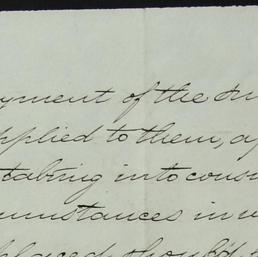 yment of the
pplied to them, a
taking into cons
cumstances in
placed should